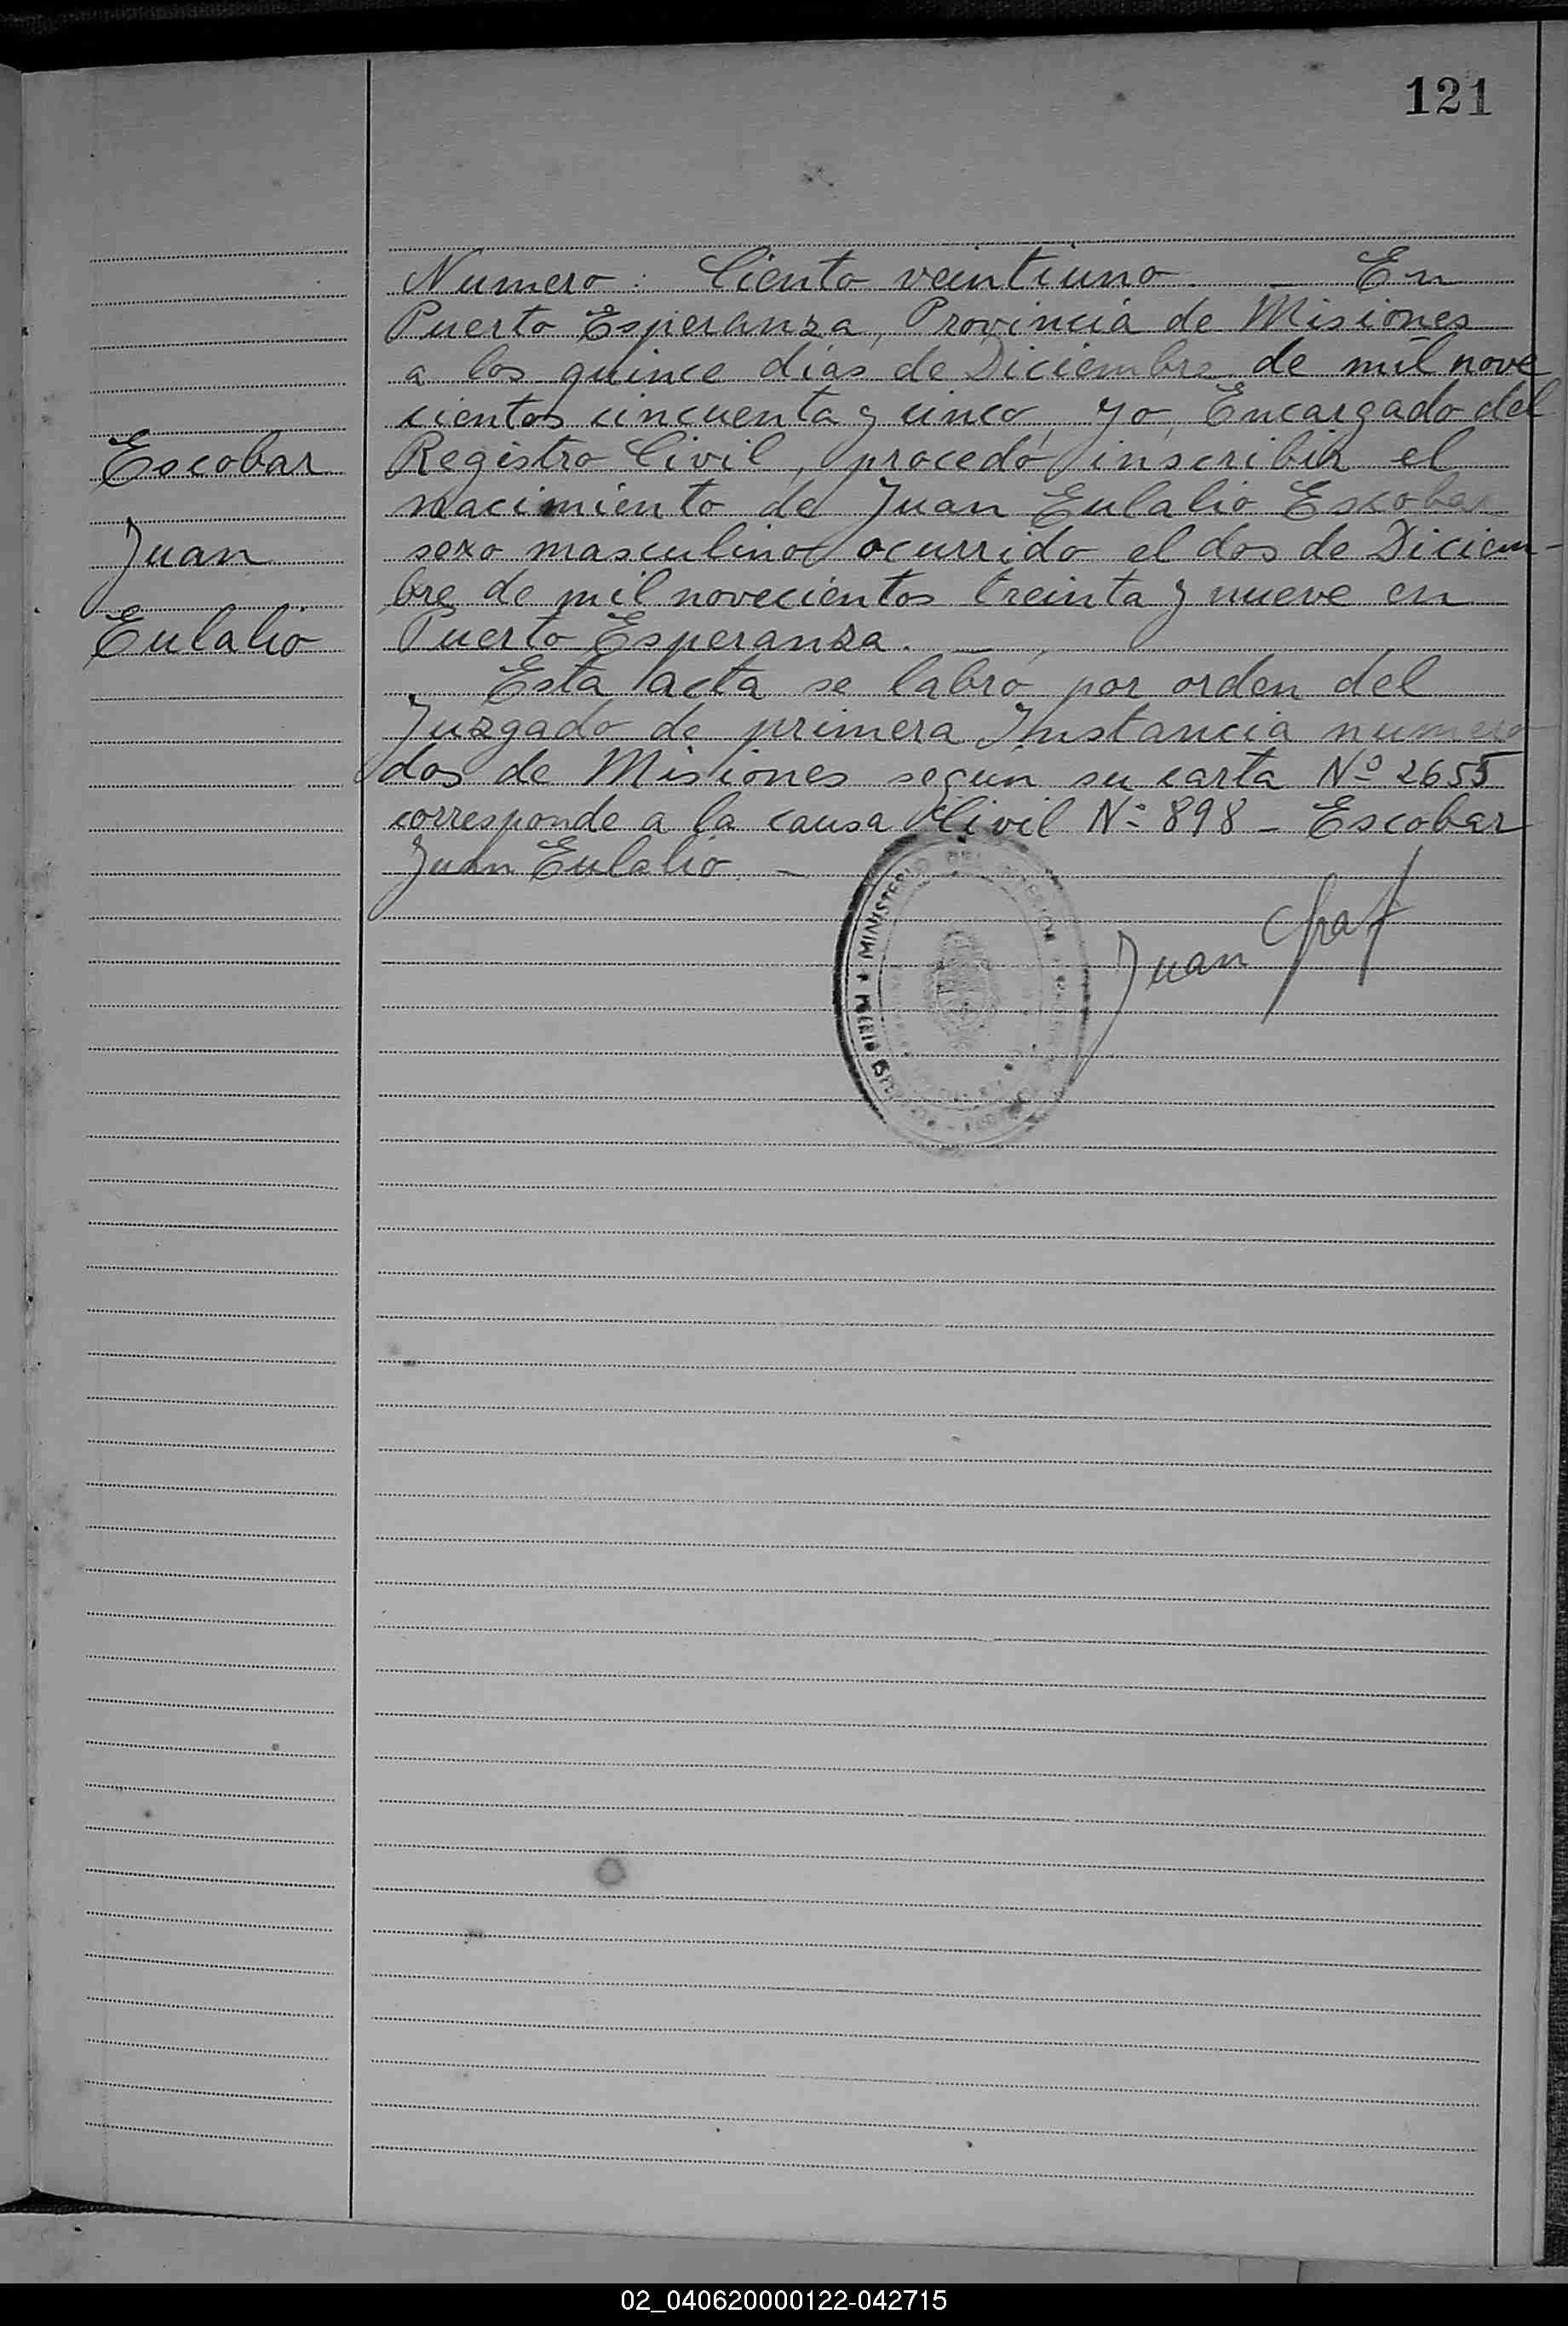 121
Numero: Ciento veintiuno. — En
Puerto Esperanza, Provincia de Misiones
a los quince días de Diciembre de mil nove
cientos cincuenta y cinco, yo, Encargado del
Registro Civil, procedo inscribir el
nacimiento de Juan Eulalio Escobar
sexo masculino ocurrido el dos de Diciem-
bre de mil novecientos treinta y nueve en
Puerto Esperanza. —
Esta acta se labró por orden del
Juzgado de primera Instancia numero
dos de Misiones segun su carta Nº 2655
corresponde a la causa Civil Nº 898 - Escobar
Juan Eulalio. —
Escobar
Juan
Eulalio
MINISTERIO DEL INTERIOR
Juan Graf
02_040620000122-042715